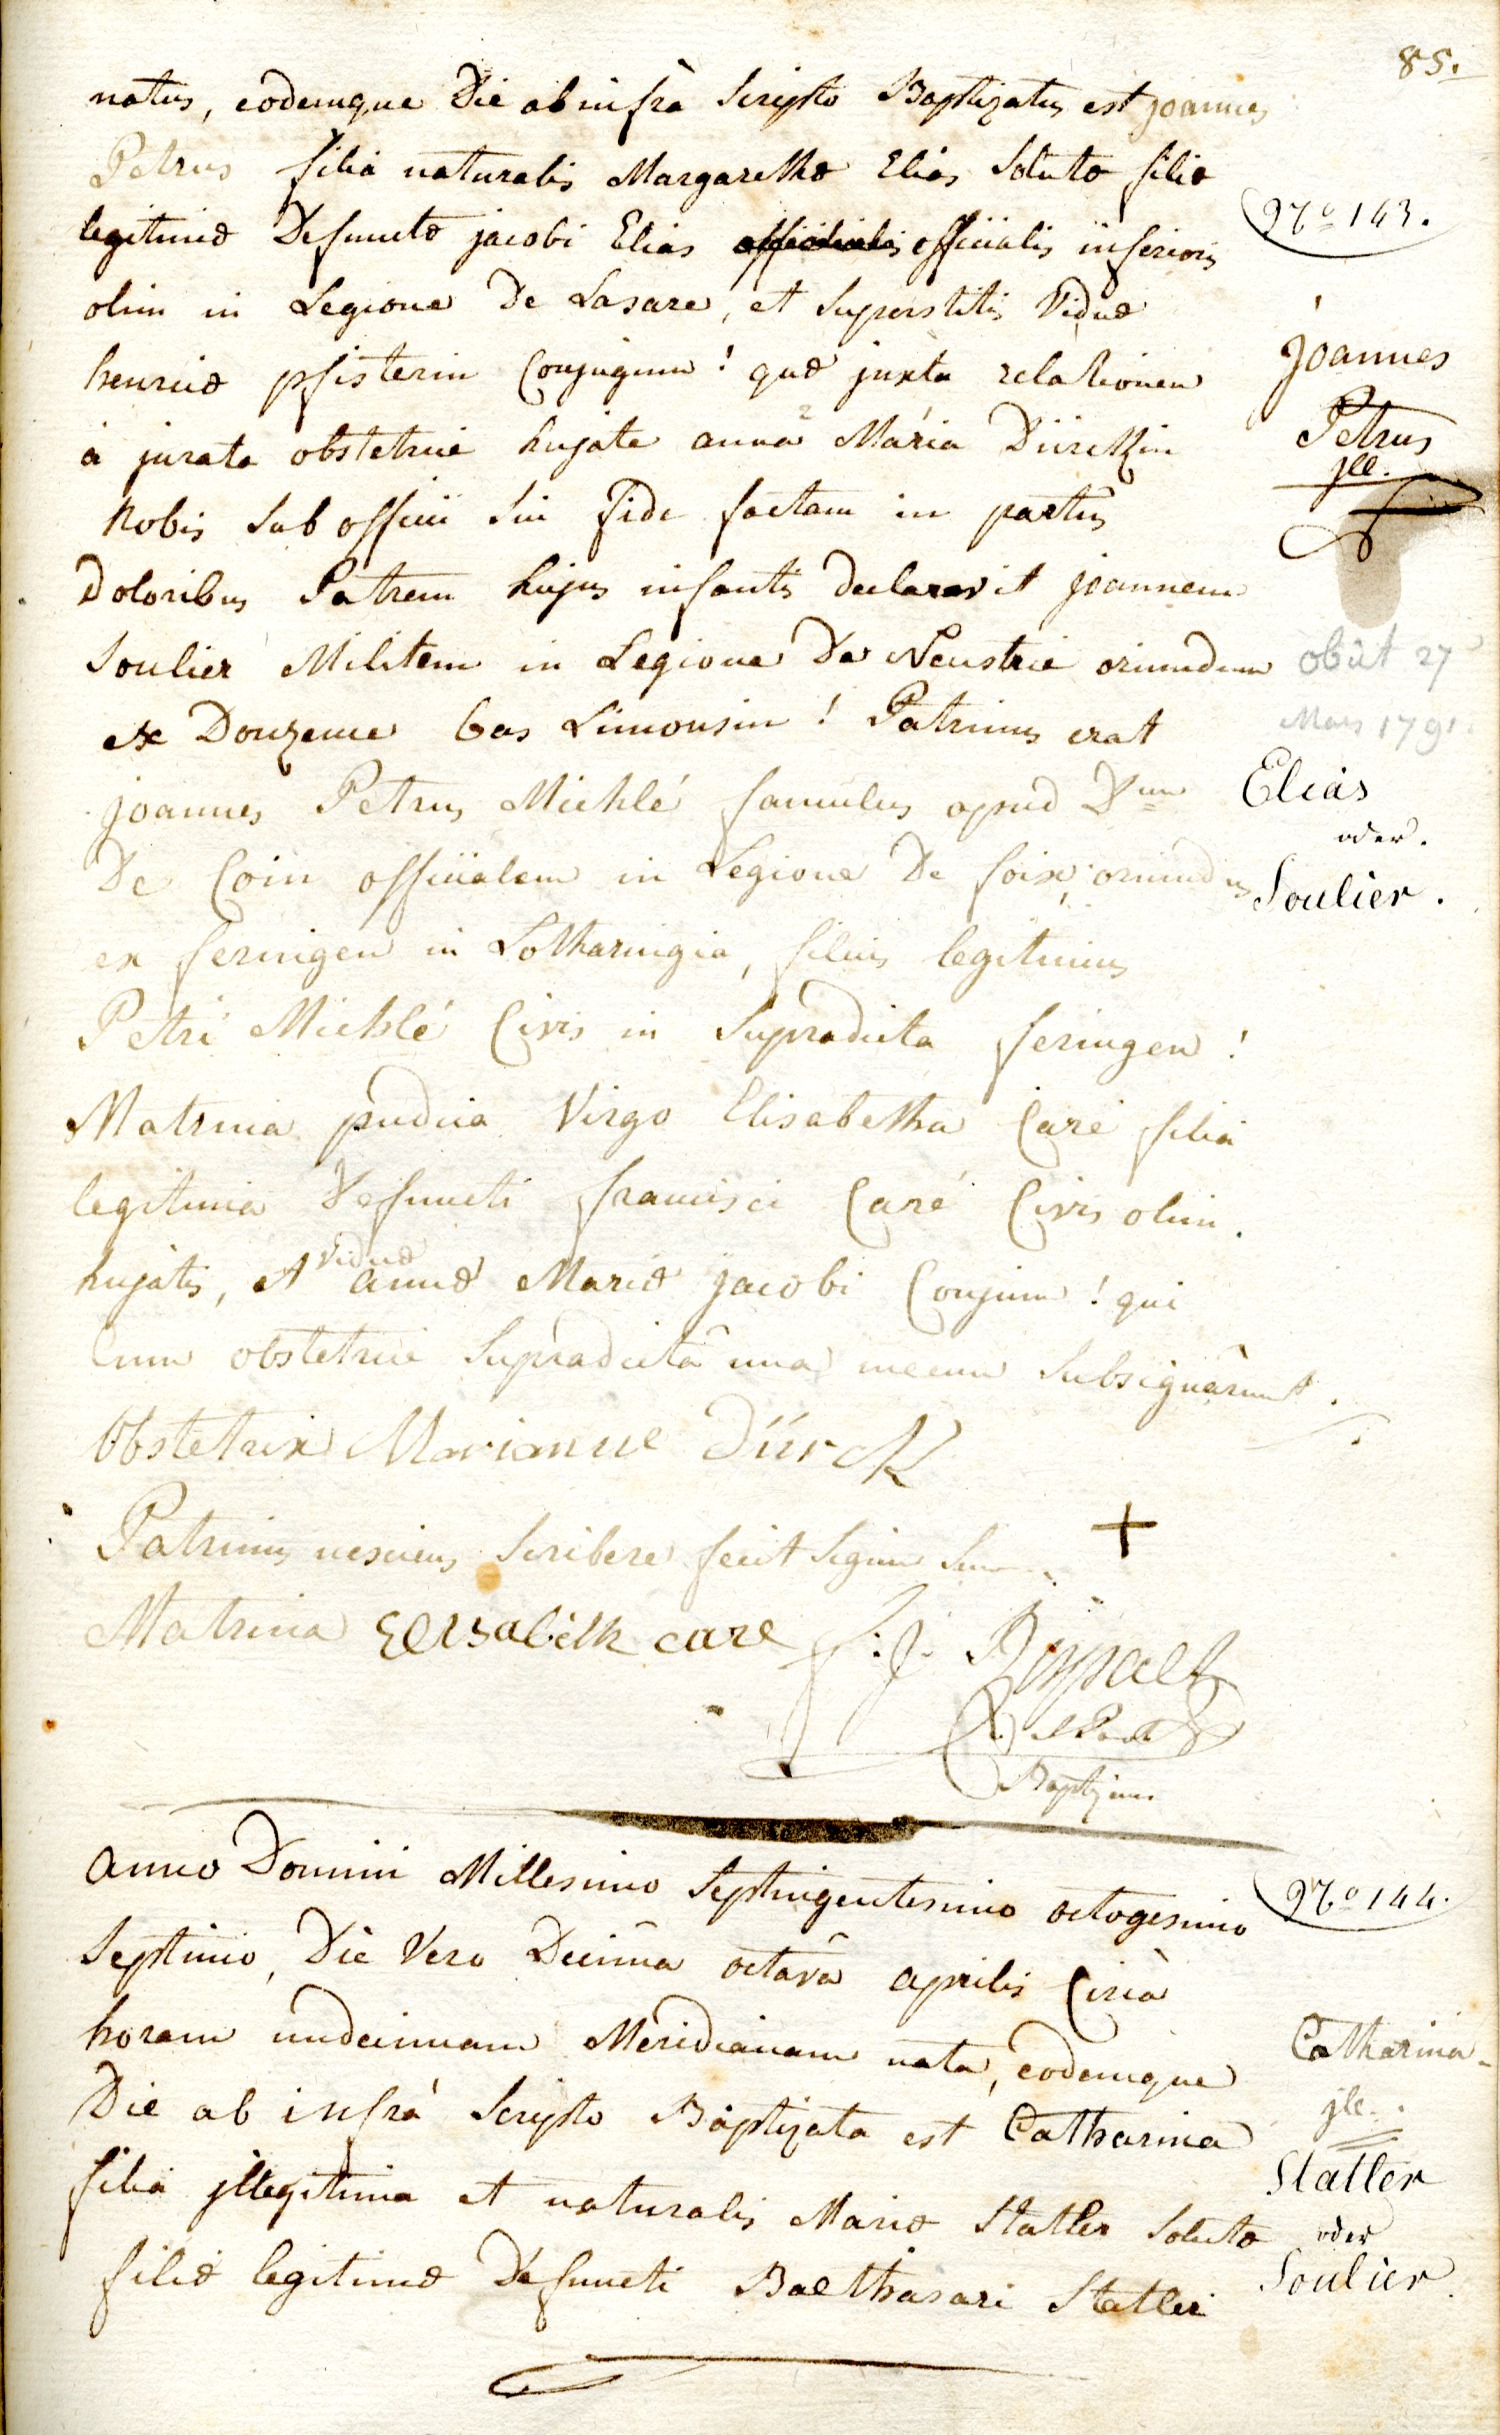 85.
natus, eodemque Die ab infrà Scripto Baptizatus est joannes
Petrus filia naturalis Margarethæ Elias Solutæ filiæ
legitimæ Defunctæ jacobi Elias officialis inferioris
Nº 143.
olim in Legione De Lasare, et Superstitis Viduæ
henricæ pfisterin Conjugum! quæ juxta relationem
à jurata obstetrice hujate anna Maria Dürckin
Nobis Sub officii Sui fide factam in partûs
Doloribus Patrem hujus infantis declaravit joannem
Soulier Militem in Legione De Neustrie oriundum
ex Douzenie bas Limousin! Patrinus erat
joannes Petrus Michlé famulus apud Dnum
De Coin officialem in Legione De foix, oriundus
ex feringen in Lotharingia, filius legitimus
Petri Michlé Civis in Supradicta feringen!
Matrina pudica Virgo Elisabetha Caré filia
legitima Defuncti francisci Caré Civis olim
hujatis, et Viduæ annæ Mariæ jacobi Conjum! qui
Cum obstetrice Supradictâ una mecum Subsignârunt.
Joannes
Petrus
jll.
obiit 27
Mars 1791.
Elias
oder.
Soulier.
Obstetrix Marianne Dürck
Patrinus nesciens Scribere fecit Signum Suum +
Matrina Elisabeth care
Baptizans
anno Domini Millesimo Septingentesimo octogesimo
Nº 144.
Septimo, Die Vero Decimâ octavâ aprilis Circà
horam undecimam Meridianam nata, eodemque
Die ab infrà Scripto Baptizata est Catharina
filia jllegitima et naturalis Mariæ Statler Solutæ
filiæ legitimæ Defuncti Balthasari Statler
Catharina
jll.
Statler
oder
Soulier